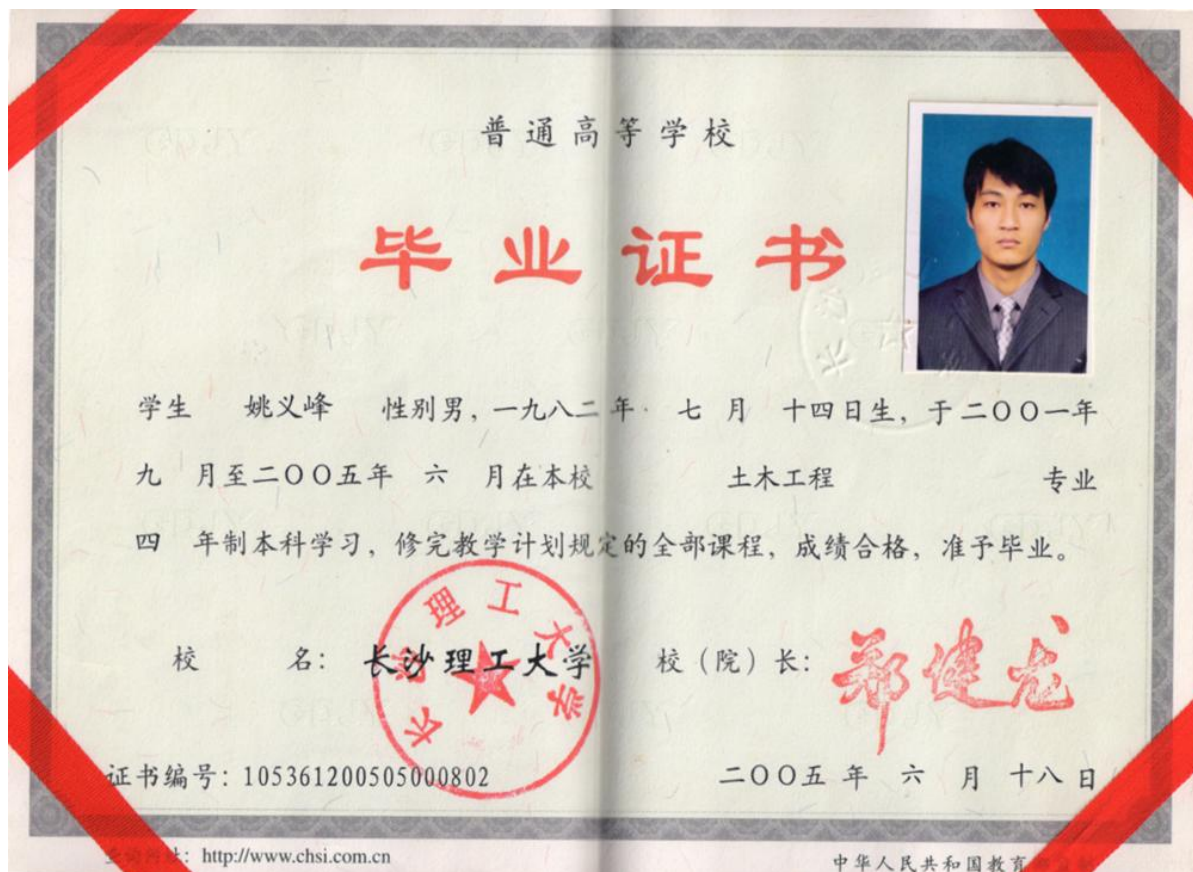 普通高等学校
毕业证书
学生 姚义峰 性别男，一九八二年 七 月 十四日生，于二〇〇一年
九 月至二〇〇五年 六 月在本校 土木工程 专业
四 年制本科学习，修完教学计划规定的全部课程，成绩合格，准予毕业。
长沙理工大学
校 名： 长沙理工大学 校（院）长： 郑健龙
证书编号：105361200505000802 二〇〇五年 六 月 十八日
查询网址：http://www.chsi.com.cn 中华人民共和国教育